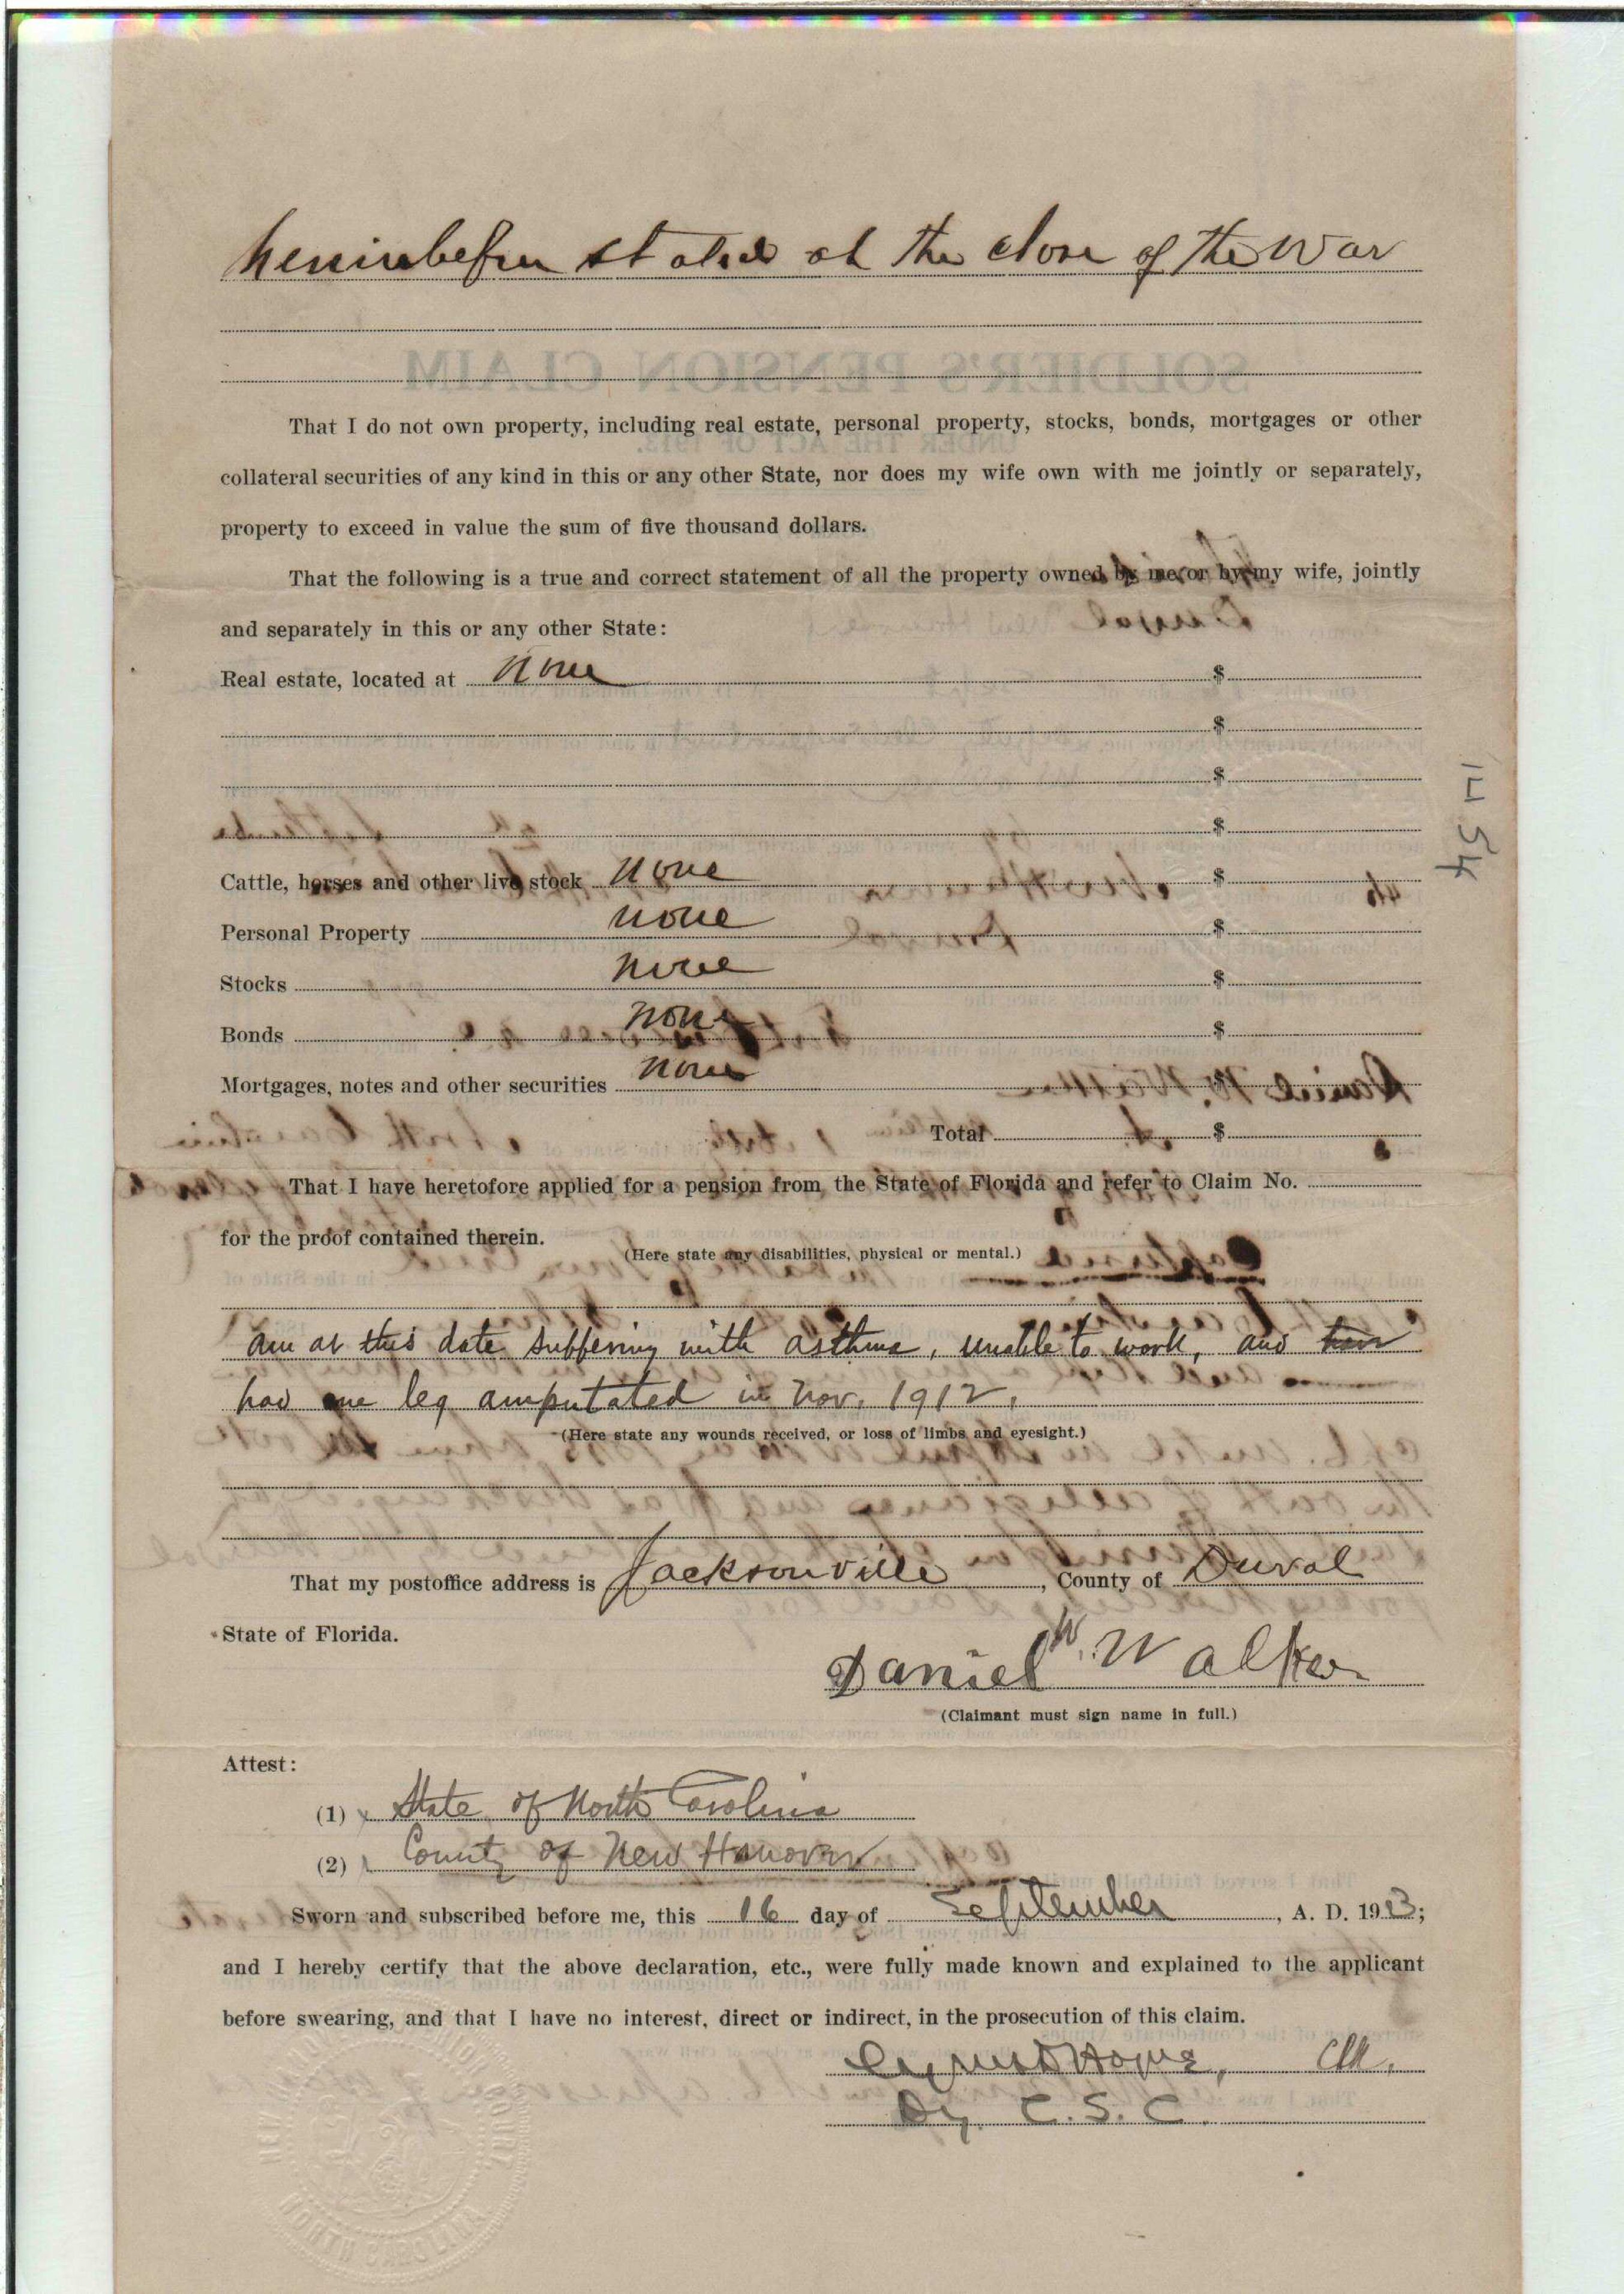 hereinbefore stated at the close of the War
That I do not own property, including real estate, personal property, stocks, bonds, mortgages or other
collateral securities of any kind in this or any other State, nor does my wife own with me jointly or separately,
property to exceed in value the sum of five thousand dollars.
That the following is a true and correct statement of all the property owned by me or by my wife, jointly
and separately in this or any other State:
Real estate, located at none $
$
$
$
Cattle, horses and other live stock none $
Personal Property none $
Stocks none $
Bonds none $
Mortgages, notes and other securities none
Total $
That I have heretofore applied for a pension from the State of Florida and refer to Claim No.
for the proof contained therein.
(Here state any disabilities, physical or mental.)
am at this date suffering with asthma, unable to work, and
had one leg amputated in Nov. 1912.
(Here state any wounds received, or loss of limbs and eyesight.)
That my postoffice address is Jacksonville, County of Duval
State of Florida.
Daniel W. Walker
(Claimant must sign name in full.)
Attest:
(1) State of North Carolina
(2) County of New Hanover
Sworn and subscribed before me, this 16 day of September, A. D. 1913;
and I hereby certify that the above declaration, etc., were fully made known and explained to the applicant
before swearing, and that I have no interest, direct or indirect, in the prosecution of this claim.
Dy. C. S. C.
NORTH CAROLINA
1454